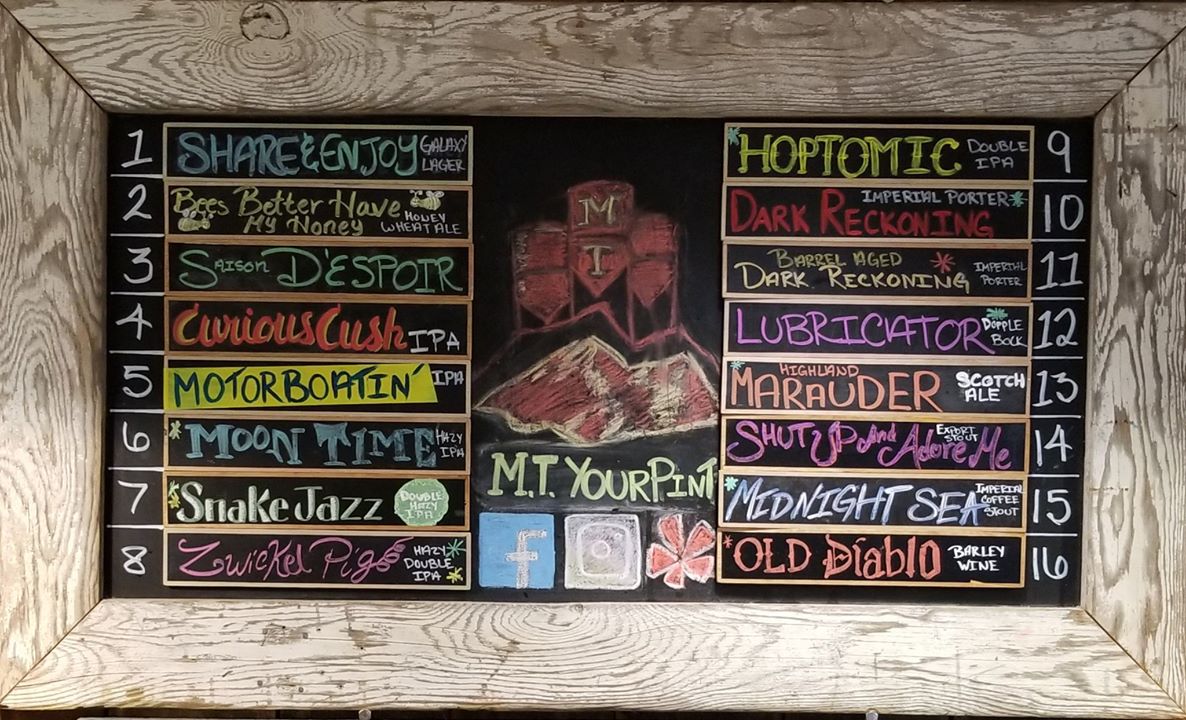 1 SHARE & ENJOY GALAXY LAGER
2 Bees Better Have My Honey HONEY WHEAT ALE
3 SAISON D'ESPOIR
4 Curious Cush IPA
5 MOTORBOATIN' IPA
6 MOON TIME HAZY IPA
7 Snake Jazz DOUBLE HAZY IPA
8 Zwickel Pigs HAZY DOUBLE IPA
M
T
M.T. YOURPINT
f
*HOPTOMIC DOUBLE IPA 9
DARK RECKONING IMPERIAL PORTER* 10
BARREL AGED DARK RECKONING * IMPERIAL PORTER 11
LUBRICIATOR *DOPPLE BOCK 12
*HIGHLAND MARAUDER SCOTCH ALE 13
SHUT UP And Adore Me EXPORT STOUT 14
*MIDNIGHT SEA IMPERIAL COFFEE STOUT 15
*OLD DiABlO BARLEY WINE 16